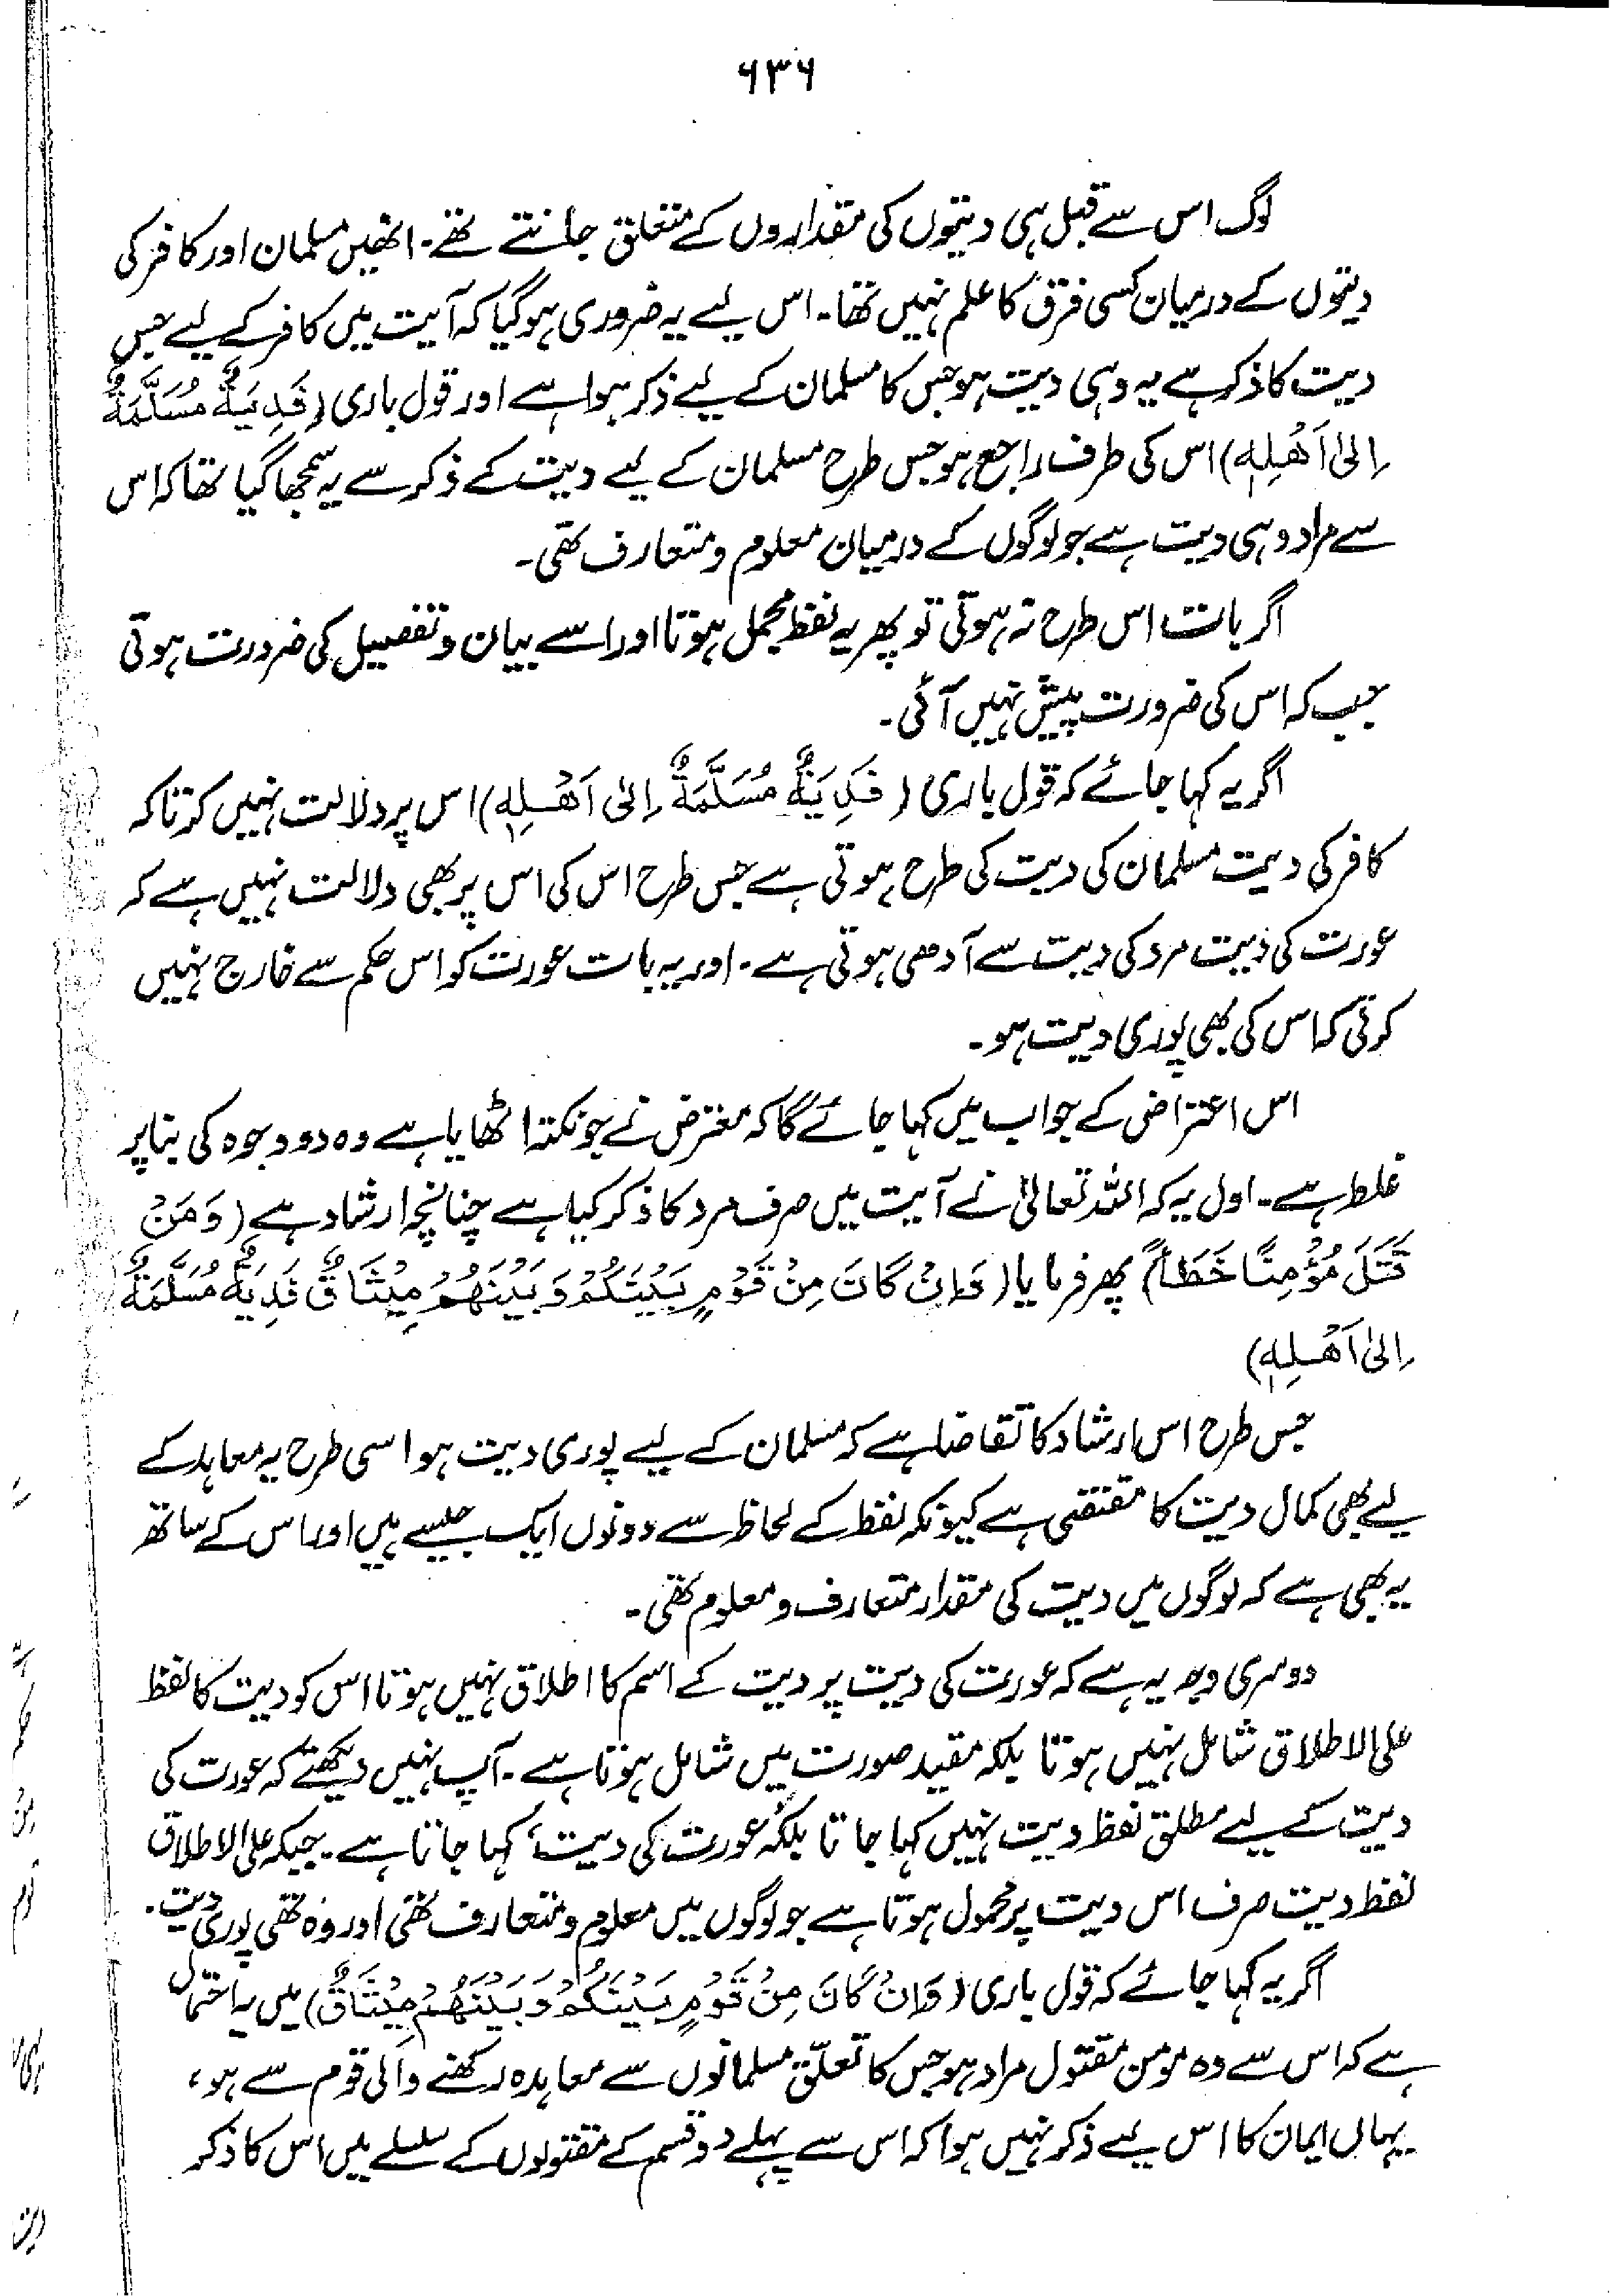 ۶۳۶
لوگ اس سے قبل ہی دیتوں کی مقداروں کے متعلق جانتے تھے۔ انھیں مسلمان اور کافر کی
دیتوں کے درمیان کسی فرق کا علم نہیں تھا۔ اس لیے یہ ضروری ہو گیا کہ آیت میں کافر کے لیے جس
دیت کا ذکر ہے یہ وہی دیت ہو جس کا مسلمان کے لیے ذکر ہوا ہے اور قول باری (فَدِیَةٌ مُسَلَّمَةٌ
اِلیٰ اَهْلِهٖ) اس کی طرف راجع ہو جس طرح مسلمان کے لیے دیت کے ذکر سے یہ سمجھا گیا تھا کہ اس
سے مراد وہی دیت ہے جو لوگوں کے درمیان معلوم و متعارف تھی۔
اگر بات اس طرح نہ ہوتی تو پھر یہ لفظ مجمل ہوتا اور اسے بیان و تفصیل کی ضرورت ہوتی
جب کہ اس کی ضرورت پیش نہیں آئی۔
اگر یہ کہا جائے کہ قول باری (فَدِیَةٌ مُسَلَّمَةٌ اِلیٰ اَهْلِهٖ) اس پر دلالت نہیں کرتا کہ
کافر کی دیت مسلمان کی دیت کی طرح ہوتی ہے جس طرح اس کی اس پر بھی دلالت نہیں ہے کہ
عورت کی دیت مرد کی دیت سے آدھی ہوتی ہے۔ اور یہ بات عورت کو اس حکم سے خارج نہیں
کرتی کہ اس کی بھی پوری دیت ہو۔
اس اعتراض کے جواب میں کہا جائے گا کہ معترض نے جو نکتہ اٹھایا ہے وہ دو وجوہ کی بنا پر
غلط ہے۔ اول یہ کہ اللہ تعالیٰ نے آیت میں صرف مرد کا ذکر کیا ہے چنانچہ ارشاد ہے (وَمَنْ
قَتَلَ مُؤْمِنًا خَطَأً) پھر فرمایا (وَاِنْ كَانَ مِنْ قَوْمٍ بَيْنَكُمْ وَبَيْنَهُمْ مِيْثَاقٌ فَدِيَةٌ مُسَلَّمَةٌ
اِلیٰ اَهْلِهٖ)
جس طرح اس ارشاد کا تقاضا ہے کہ مسلمان کے لیے پوری دیت ہو اسی طرح یہ معاہد کے
لیے بھی کمال دیت کا مقتضی ہے کیونکہ لفظ کے لحاظ سے دونوں ایک جیسے ہیں اور اس کے ساتھ
یہ بھی ہے کہ لوگوں میں دیت کی مقدار متعارف و معلوم تھی۔
دوسری وجہ یہ ہے کہ عورت کی دیت پر دیت کے اسم کا اطلاق نہیں ہوتا اس کو دیت کا لفظ
علی الاطلاق شامل نہیں ہوتا بلکہ مقید صورت میں شامل ہوتا ہے۔ آپ نہیں دیکھتے کہ عورت کی
دیت کے لیے مطلق لفظ دیت نہیں کہا جاتا بلکہ ’عورت کی دیت‘ کہا جاتا ہے۔ جبکہ علی الاطلاق
لفظ دیت صرف اس دیت پر محمول ہوتا ہے جو لوگوں میں معلوم و متعارف تھی اور وہ تھی پوری دیت۔
اگر یہ کہا جائے کہ قول باری (وَاِنْ كَانَ مِنْ قَوْمٍ بَيْنَكُمْ وَبَيْنَهُمْ مِيْثَاقٌ) میں یہ احتمال
ہے کہ اس سے وہ مومن مقتول مراد ہو جس کا تعلّق مسلمانوں سے معاہدہ رکھنے والی قوم سے ہو،
یہاں ایمان کا اس لیے ذکر نہیں ہوا کہ اس سے پہلے دو قسم کے مقتولوں کے سلسلے میں اس کا ذکر